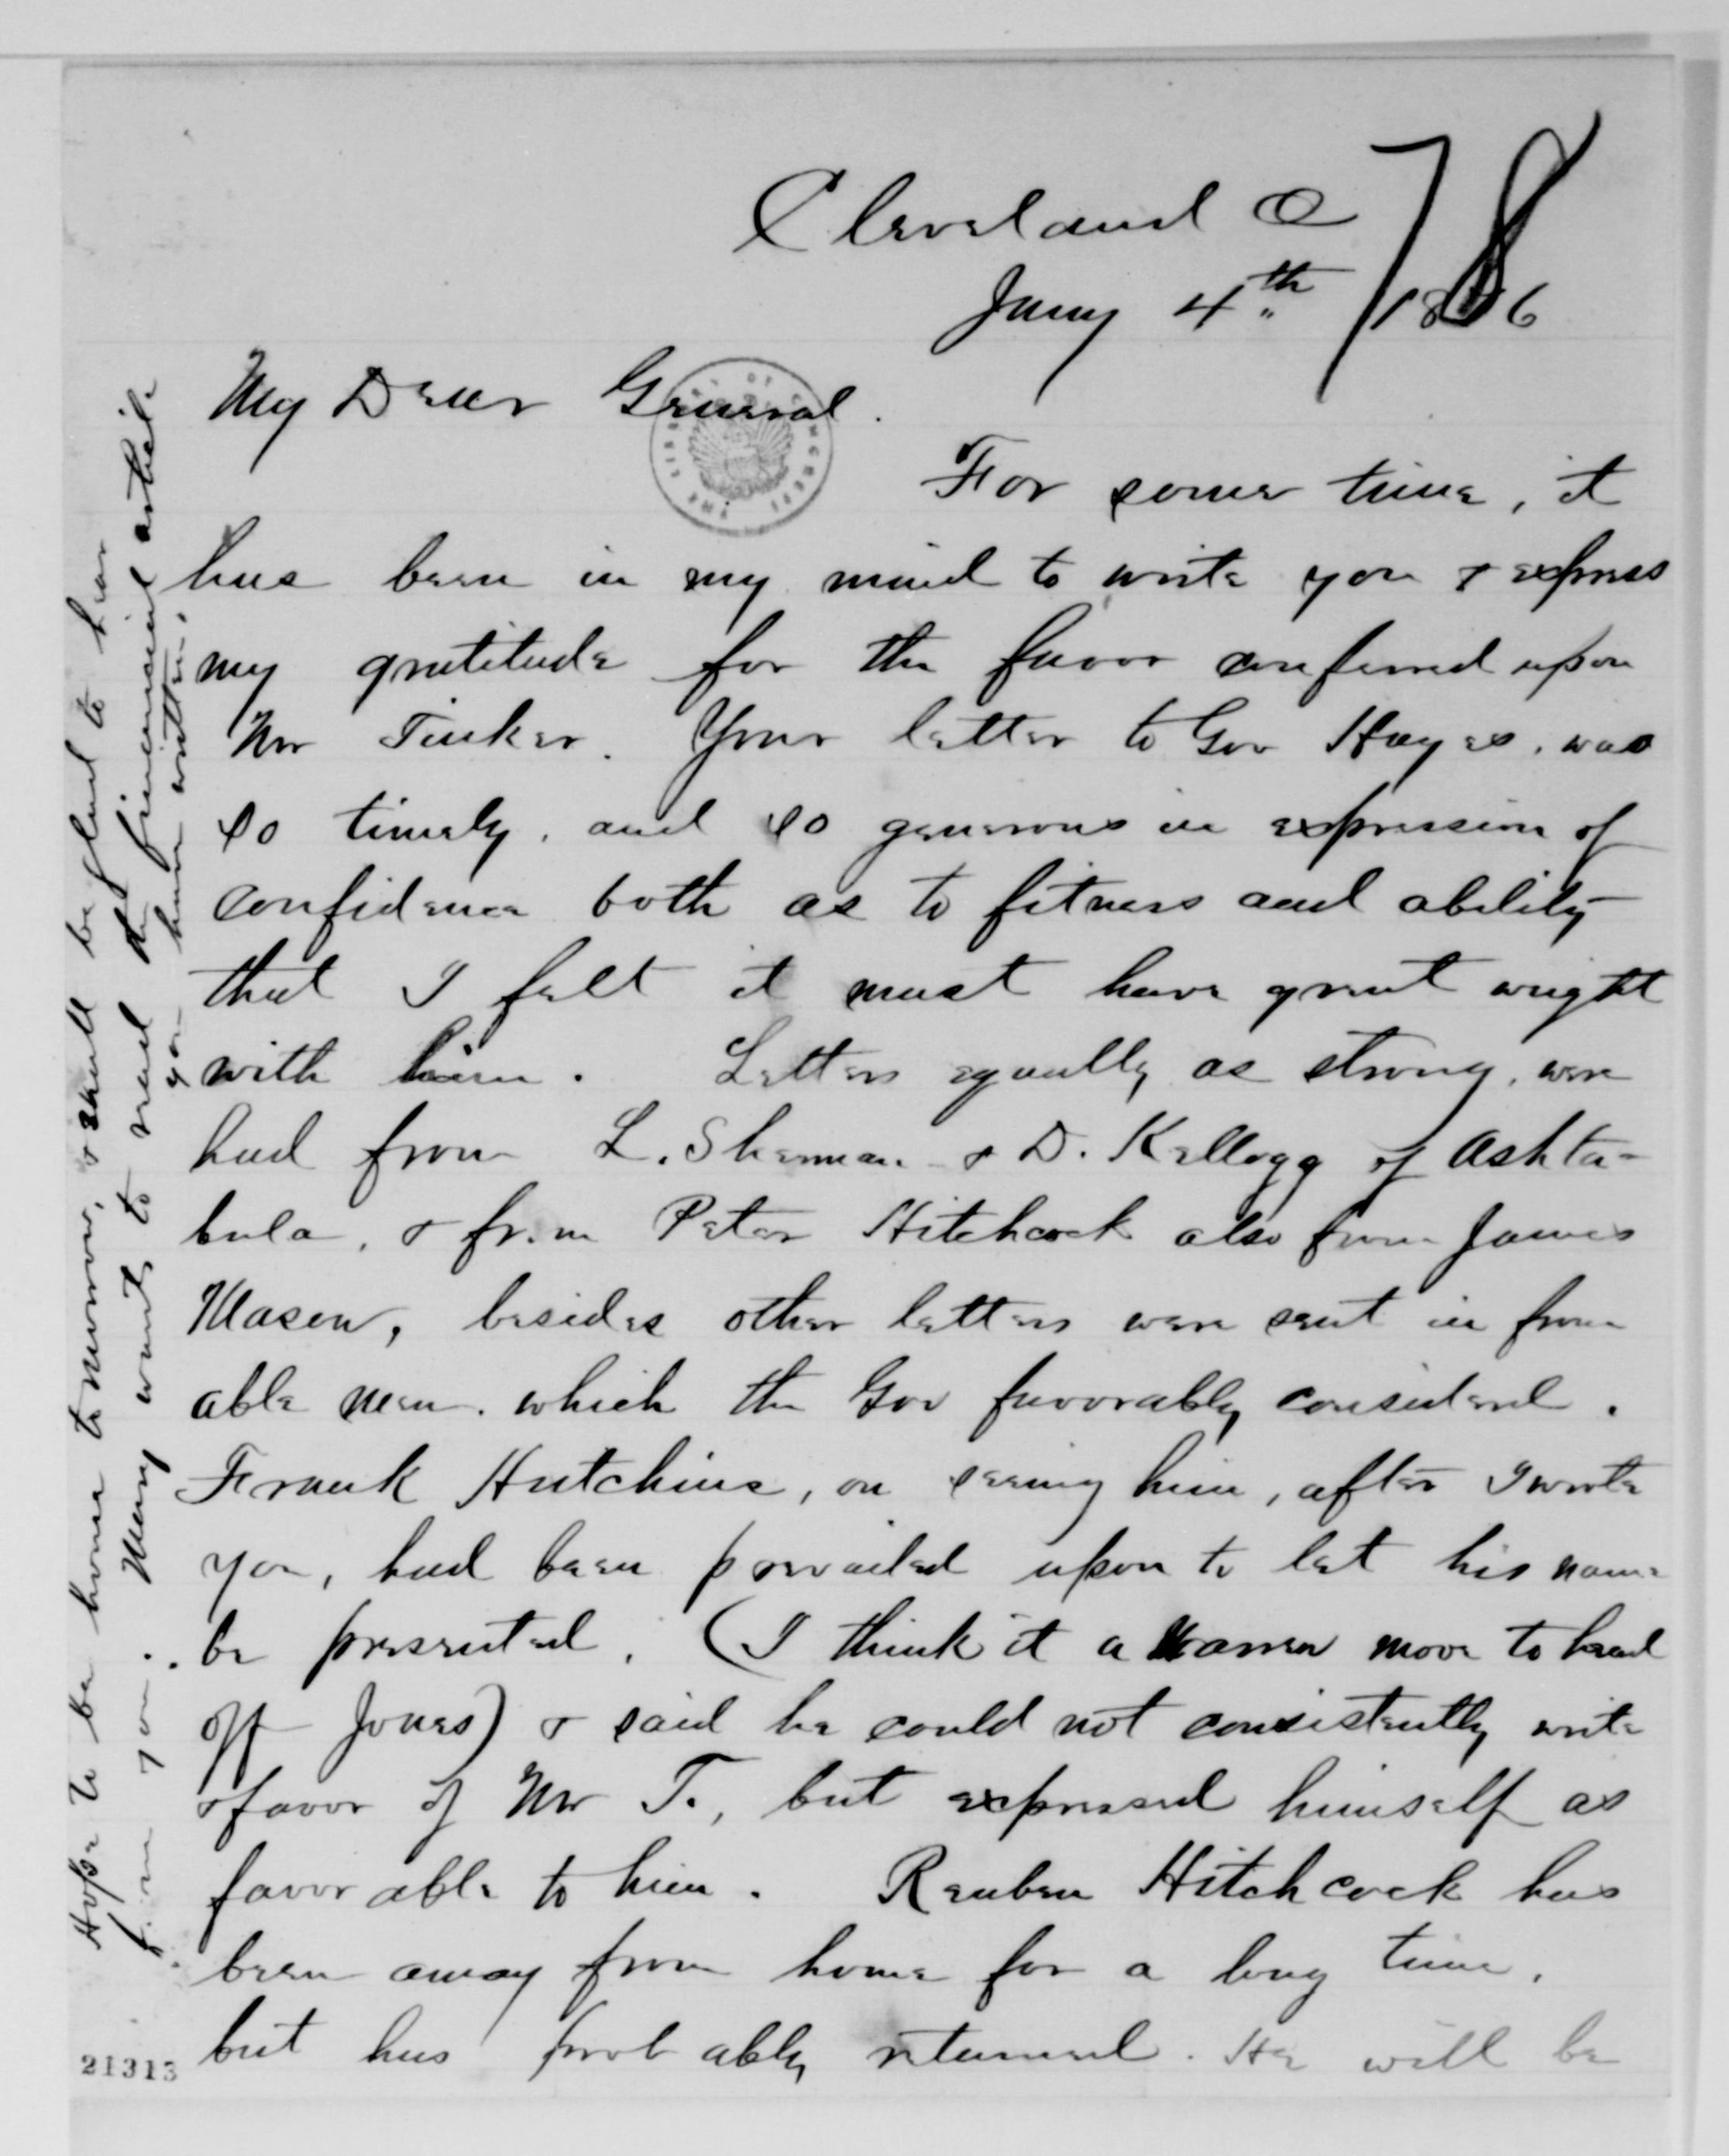 Cleveland O
Jany 4th 1876
78
My Dear General.
For some time, it
has been in my mind to write you & express
my gratitude for the favor conferred upon
Mr Tinker. Your letter to Gov Hayes, was
so timely, and so generous in expression of
confidence both as to fitness and ability
that I felt it must have great weight
with him. Letters equally as strong, were
had from L. Sherman & D. Kellogg of Ashta-
bula, & from Peter Hitchcock also from James
Mason, besides other letters were sent in from
able men, which the Gov favorably considered.
Frank Hutchins, on seeing him, after I wrote
you, had been prevailed upon to let his name
be presented. (I think it a move to head
off Jones) & said he could not consistently write
favor of Mr T., but expressed himself as
favorable to him. Reuben Hitchcock has
been away from home for a long time,
but has probably returned. He will be
21313
Hope to be home tomorrow, & shall be glad to hear
from you. Mary wants to read the article
you have written.
THE LIBRARY OF CONGRESS